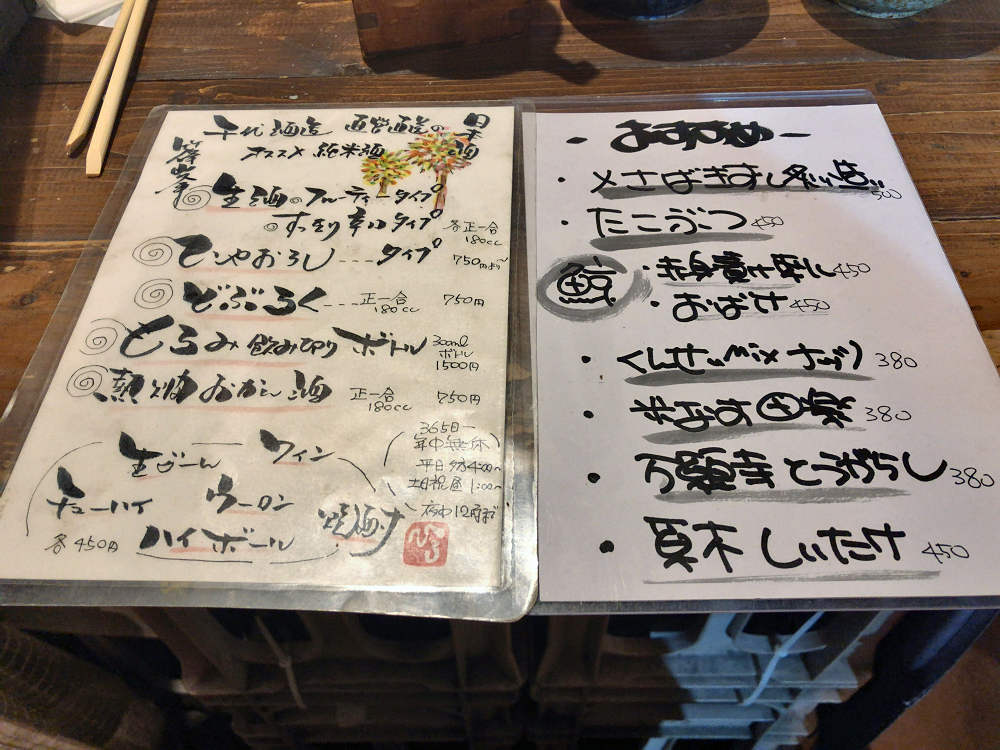 千代酒造 直営直送の日本酒
篠峯
オススメ 純米酒
生酒のフルーティータイプ
すっきり辛口タイプ 各正一合
180cc
ひやおろし---タイプ 750円より〜
どぶろく---正一合 750円
180cc
もろみ飲み切りボトル 300ml
ボトル
1500円
熱燗おかん酒 正一合 750円
180cc
生ビール ワイン
チューハイ ウーロン
各450円 ハイボール
365日
年中無休
平日夕4:00〜
土日祝昼1:00〜
夜12時まで
おすすめ
・〆さばきずし 500
・たこぶつ 450
・450
・おばけ 450
・くんせいmixナッツ 380
・380
・万願寺とうがらし 380
・原木しいたけ 450